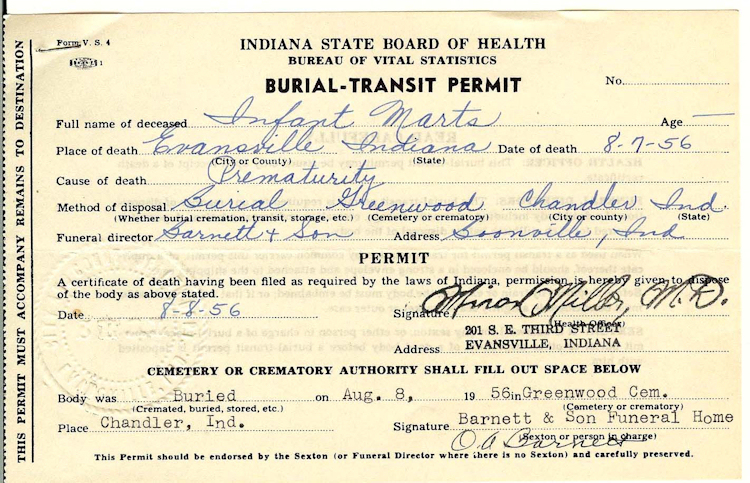 THIS PERMIT MUST ACCOMPANY REMAINS TO DESTINATION
Form V. S. 4
INDIANA STATE BOARD OF HEALTH
BUREAU OF VITAL STATISTICS
BURIAL-TRANSIT PERMIT
No.
Full name of deceased Infant Marts Age —
Place of death Evansville Indiana Date of death 8-7-56
(City or County) (State)
Cause of death Prematurity
Method of disposal Burial Greenwood Chandler Ind.
(Whether burial cremation, transit, storage, etc.) (Cemetery or crematory) (City or county) (State)
Funeral director Barnett & Son Address Boonville, Ind
PERMIT
A certificate of death having been filed as required by the laws of Indiana, permission is hereby given to dispose
of the body as above stated.
Date 8-8-56 Signature Minor Miller, M.D.
(Health Officer)
201 S. E. THIRD STREET
Address EVANSVILLE, INDIANA
CEMETERY OR CREMATORY AUTHORITY SHALL FILL OUT SPACE BELOW
Body was Buried on Aug. 8, 1956 in Greenwood Cem.
(Cremated, buried, stored, etc.) (Cemetery or crematory)
Place Chandler, Ind. Signature Barnett & Son Funeral Home
(Sexton or person in charge)
O A Barnett
This Permit should be endorsed by the Sexton (or Funeral Director where there is no Sexton) and carefully preserved.